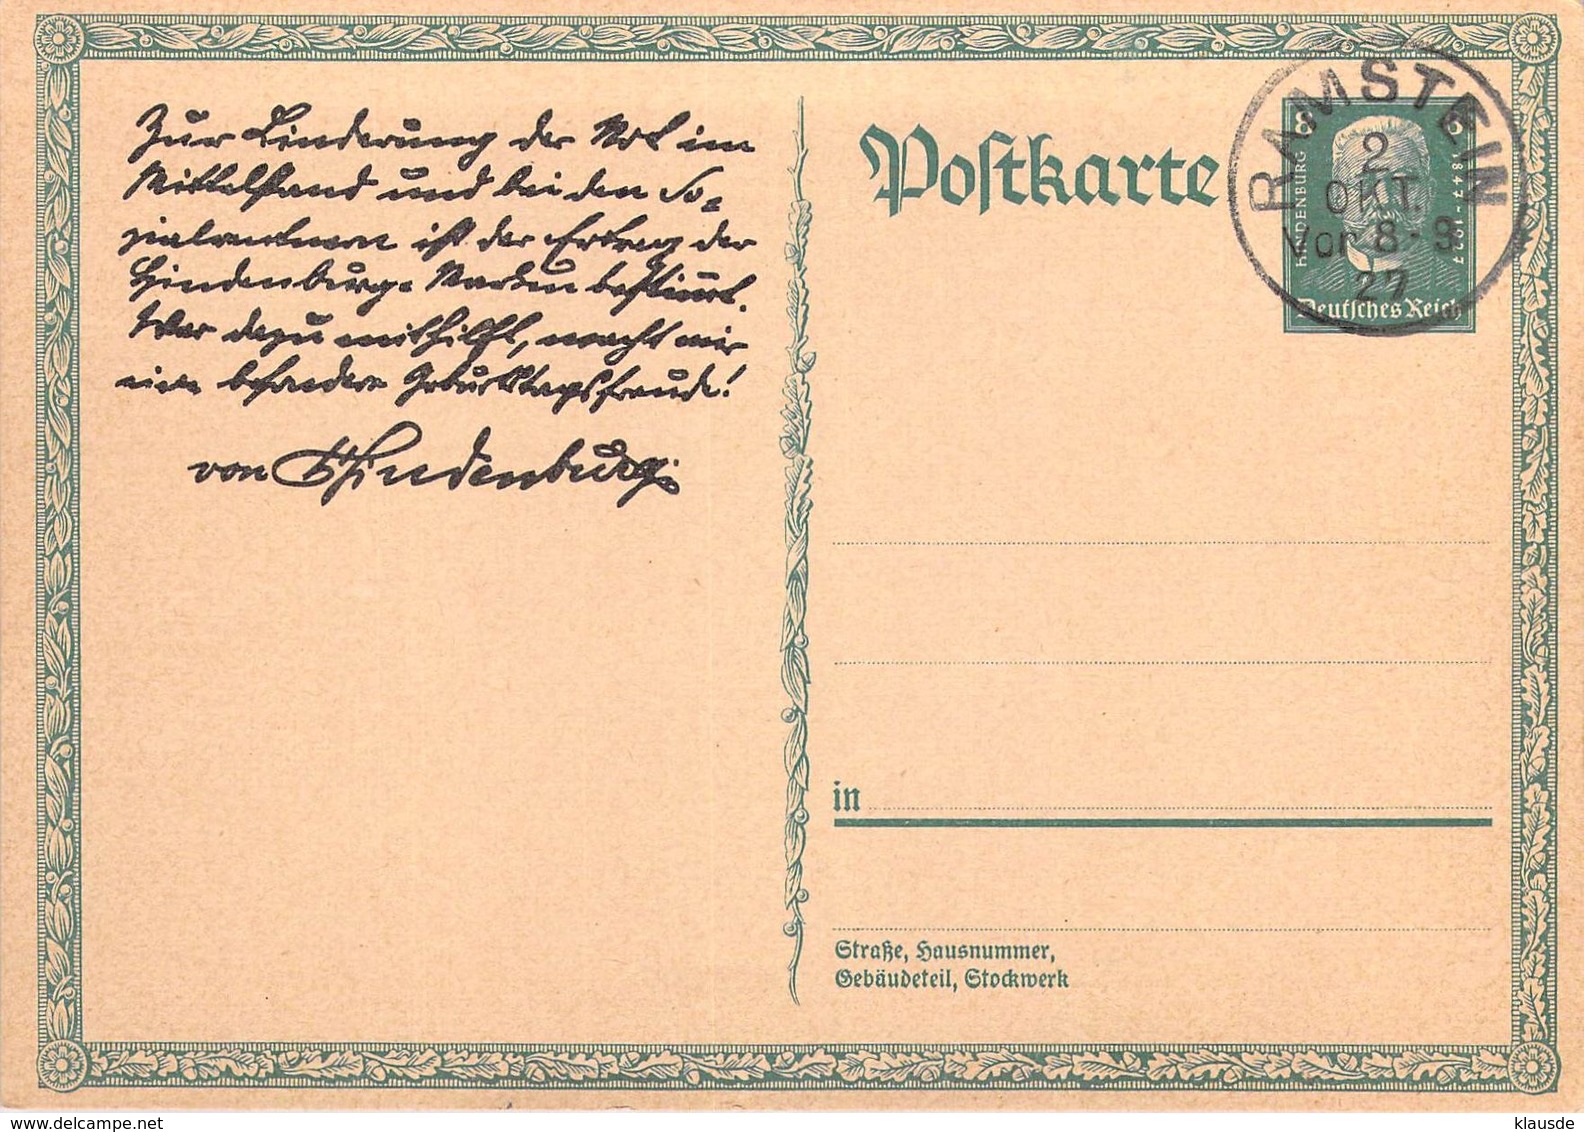 Zur Linderung der Not im
Mittelstand und bei den So-
zialrentnern ist der Ertrag der
Hindenburg-Marken bestimmt.
Wer dazu mithilft, macht mir
eine besondere Geburtstagsfreude!
von Hindenburg.
Postkarte
RAMSTEIN
2
OKT.
Vor 8-9
27
8 8
HINDENBURG
1847-1927
Deutsches Reich
in
Straße, Hausnummer,
Gebäudeteil, Stockwerk
www.delcampe.net
klausde